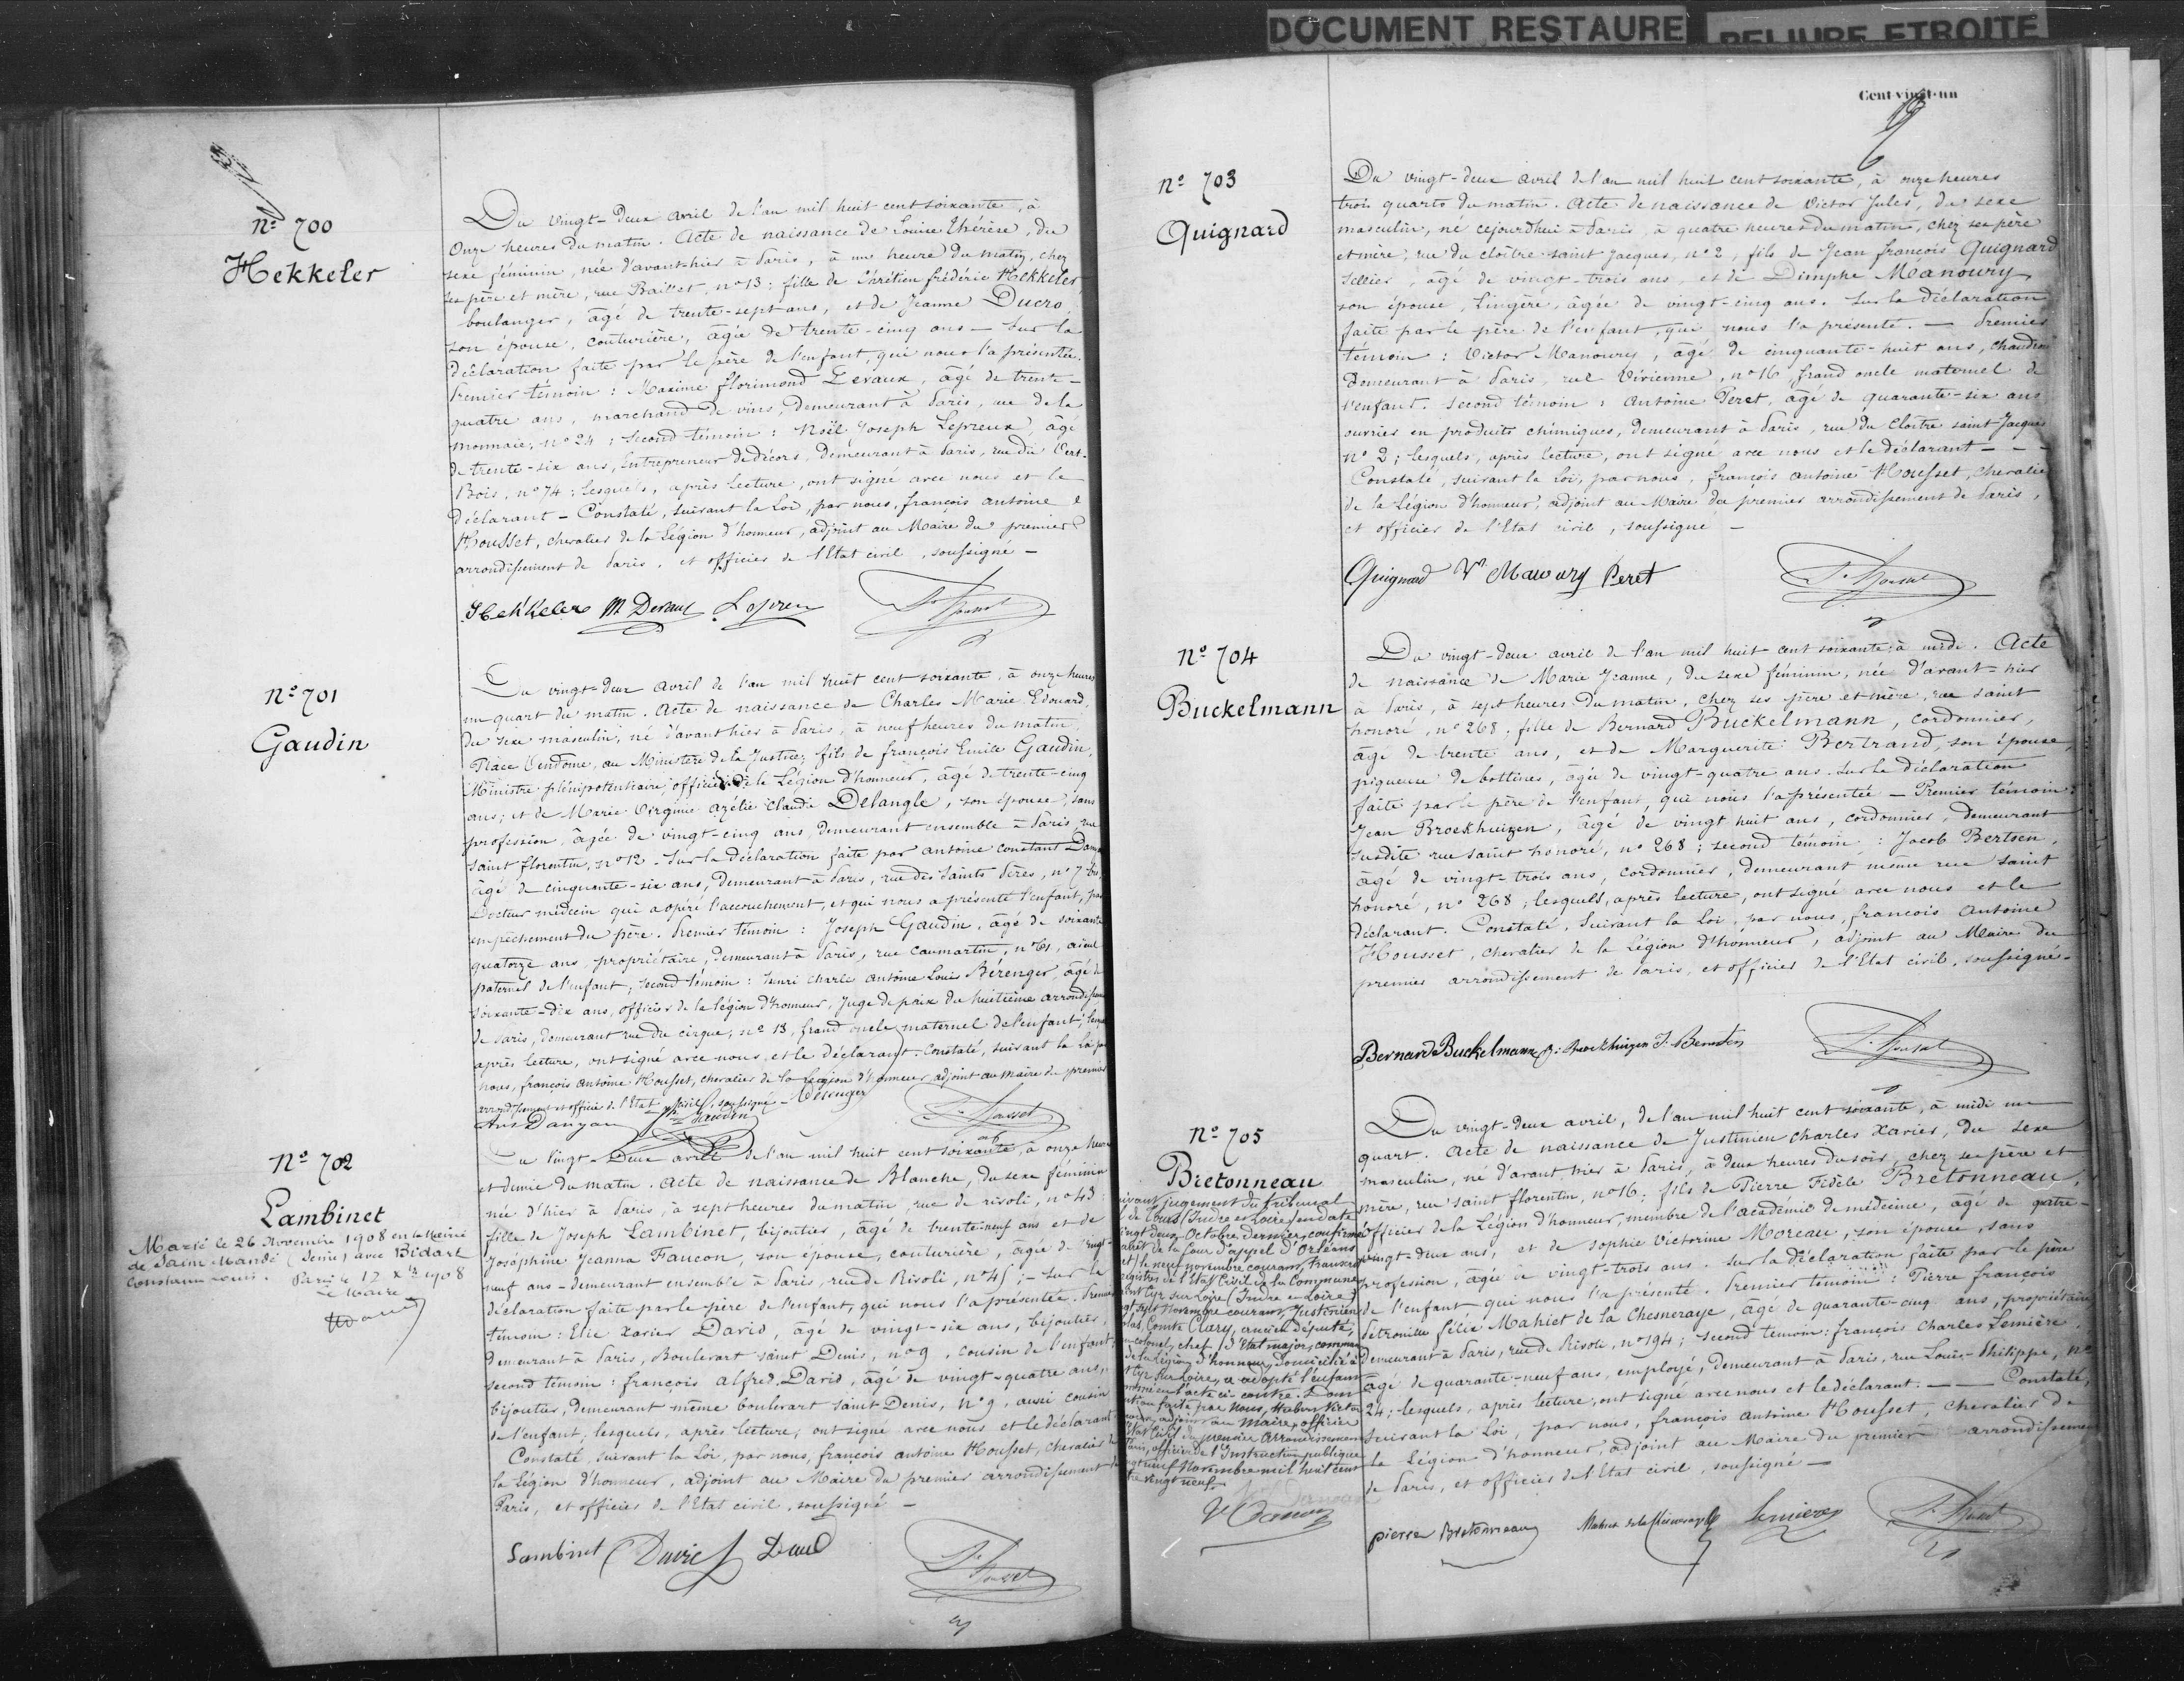 DOCUMENT RESTAURE
RELIURE ETROITE
Nº 700
Hekkeler
Du vingt-deux avril de l'an mil huit cent soixante, à
onze heures du matin. Acte de naissance de Louise Thérèse, du
sexe féminin, née d'avant-hier à Paris, à une heure du matin, chez
ses père et mère, rue Baillet, nº 13; fille de Chrétien frédéric Hekkeler,
boulanger, âgé de trente-sept ans, et de Jeanne Ducro,
son épouse, couturière, âgée de trente-cinq ans — Sur la
déclaration faite par le père de l'enfant, qui nous l'a présentée.
Premier témoin: Maxime florimond Devaux, âgé de trente-
quatre ans, marchand de vins, demeurant à Paris, rue de la
monnaie, nº 24; Second témoin: Noël Joseph Lepreux, âgé
de trente-six ans, Entrepreneur de décors, demeurant à Paris, rue du Vert-
Bois, nº 74; lesquels, après lecture, ont signé avec nous et le
déclarant — Constaté, suivant la Loi, par nous, françois antoine
Housset, chevalier de la Légion d'honneur, adjoint au Maire du premier
arrondissement de Paris, et officier de l'Etat civil, soussigné —
Hekkeler M Devaux Lepreux F. Housset
Nº 701
Gaudin
Du vingt-deux avril de l'an mil huit cent soixante, à onze heures
un quart du matin. Acte de naissance de Charles Marie Edouard,
du sexe masculin, né d'avant hier à Paris, à neuf heures du matin,
Place Vendôme, au Ministère de la Justice; fils de françois Emile Gaudin,
Ministre plénipotentiaire, officier de la Légion d'honneur, âgé de trente-cinq
ans; et de Marie Virginie Azélie Claudie Delangle, son épouse, sans
profession, âgée de vingt-cinq ans, demeurant ensemble à Paris, rue
saint florentin, nº 12. Sur la déclaration faite par antoine constant
âgé de cinquante-six ans, demeurant à Paris, rue des Saints Pères, nº 7 bis,
Docteur médecin qui a opéré l'accouchement, et qui nous a présenté l'enfant, par
empêchement du père. Premier témoin: Joseph Gaudin, âgé de soixante
quatorze ans, propriétaire, demeurant à Paris, rue Caumartin, nº 61, aïeul
paternel de l'enfant; second témoin: henri charle antoine Louis Bérenger, âgé de
soixante-dix ans, officier de la légion d'honneur, Juge de paix du huitième arrondissement
de Paris, demeurant rue du cirque, nº 13, grand oncle maternel de l'enfant;
après lecture, ont signé avec nous, et le déclarant. Constaté, suivant la Loi par
nous, françois antoine Housset, chevalier de la Légion d'honneur, adjoint au maire du premier
arrondissement et officier de l'Etat civil, soussigné — Bérenger
Gaudin F. Housset
Nº 702
Lambinet
Marié le 26 Novembre 1908 en la Mairie
de Saint Mandé (Seine) avec Bidart
Constann Louis.
Paris le 12 Xbre 1908
Le Maire
Du Vingt-Deux avril de l'an mil huit cent soixante, à onze heures
et demie du matin. Acte de naissance de Blanche, du sexe féminin
née d'hier à Paris, à sept heures du matin, rue de rivoli, nº 45;
fille de Joseph Lambinet, bijoutier, âgé de trente-neuf ans et de
Josephine Jeanna Faucon, son épouse, couturière, âgée de vingt-
neuf ans — demeurant ensemble à Paris, rue de Rivoli, nº 45; — Sur la
déclaration faite par le père de l'enfant, qui nous l'a présentée. Premier
témoin: Elie Xavier David, âgé de vingt-six ans, bijoutier,
demeurant à Paris, Boulevart saint Denis, nº 9, cousin de l'enfant;
second témoin: françois alfred David, âgé de vingt-quatre ans,
bijoutier, demeurant même boulevart saint-Denis, nº 9, aussi cousin
de l'enfant, lesquels, après lecture, ont signé avec nous et le déclarant
Constaté, suivant la Loi, par nous, françois antoine Housset, chevalier de
la Légion d'honneur, adjoint au Maire du premier arrondissement de
Paris, et officier de l'Etat civil, soussigné —
Lambinet David David F. Housset
Cent-vingt-un
Nº 703
Quignard
Du vingt-deux avril de l'an mil huit cent soixante, à onze heures
trois quarts du matin. Acte de naissance de Victor Jules, du sexe
masculin, né cejourdhui à Paris, à quatre heures du matin, chez ses père
et mère, rue du cloître saint Jacques, nº 2, fils de Jean françois Quignard
sellier, âgé de vingt-trois ans, et de Dimphe Manoury,
son épouse, Lingère, âgée de vingt-cinq ans. Sur la déclaration
faite par le père de l'enfant, qui nous l'a présenté. — Premier
témoin: Victor Manoury, âgé de cinquante-huit ans,
demeurant à Paris, rue Vivienne, nº 16, grand oncle maternel de
l'enfant. Second témoin: antoine Peret, âgé de quarante-six ans
ouvrier en produits chimiques, demeurant à Paris, rue du Cloître saint-Jacques
nº 2; lesquels, après lecture, ont signé avec nous et le déclarant — —
Constaté, suivant la Loi, par nous, françois antoine Housset, chevalier
de la Légion d'honneur, adjoint au Maire du premier arrondissement de Paris,
et officier de l'Etat civil, soussigné —
Quignard Vr Manoury Peret F. Housset
Nº 704
Buckelmann
Du vingt-deux avril de l'an mil huit cent soixante à midi. Acte
de naissance de Marie Jeanne, du sexe féminin, née d'avant-hier
à Paris, à sept heures du matin, chez ses père et mère, rue saint
honoré, nº 268, fille de Bernard Buckelmann, cordonnier,
âgé de trente ans, et de Marguerite Bertrand, son épouse,
piqueuse de bottines, âgée de vingt-quatre ans. Sur la déclaration
faite par le père de l'enfant, qui nous l'a présentée — Premier témoin:
Jean Broekhuizen, âgé de vingt huit ans, cordonnier, demeurant
susdite rue saint honoré, nº 268; second témoin: Jacob Bertsen,
âgé de vingt-trois ans, cordonnier, demeurant même rue saint
honoré, nº 268; lesquels, après lecture, ont signé avec nous et le
déclarant. Constaté, suivant la Loi, par nous, françois antoine
Housset, chevalier de la Légion d'honneur, adjoint au Maire du
premier arrondissement de Paris, et officier de l'Etat civil, soussigné —
Bernard Buckelmann J. Broekhuizen F. Housset
Nº 705
Bretonneau
suivant jugement du tribunal
de Tours (Indre et Loire) en date
vingt deux Octobre dernier, confirmé
arrêt de la Cour d'appel d'Orléans
le neuf novembre courant,
registres de l'Etat Civil de la Commune
Saint Cyr sur Loire (Indre et Loire)
vingt sept Novembre courant, Justinien
Nicolas, Comte Clary, ancien député,
colonel, chef d'Etat major,
de la Légion d'honneur, domicilié à
St Cyr sur Loire, a adopté l'enfant
en l'acte ci-contre. Dont
mention faite par Nous, Victor
adjoint au Maire, officier
Etat Civil du premier Arrondissement
Paris, officier de l'Instruction publique
vingt neuf Novembre mil huit cent
quatre vingt neuf.
Du vingt-deux avril, de l'an mil huit cent soixante, à midi un
quart. Acte de naissance de Justinien charles Xavier, du sexe
masculin, né d'avant hier à Paris, à deux heures du soir, chez ses père et
mère, rue saint florentin, nº 16; fils de Pierre Fidèle Bretonneau,
officier de la Légion d'honneur, membre de l'académie de médecine, âgé de quatre-
vingt-deux ans, et de Sophie Victorine Moreau, son épouse, sans
profession, âgée de vingt-trois ans. Sur la déclaration faite par le père
de l'enfant qui nous l'a présenté. Premier témoin: Pierre françois
félix Mahiet de la Chesneraye, âgé de quarante-cinq ans, propriétaire
demeurant à Paris, rue de Rivoli, nº 194; second témoin: françois Charles Lemière,
âgé de quarante-neuf ans, employé, demeurant à Paris, rue Louis-Philippe, nº
24; lesquels, après lecture, ont signé avec nous et le déclarant. — — Constaté,
suivant la Loi, par nous, françois antoine Housset, chevalier de
la Légion d'honneur, adjoint au Maire du premier arrondissement
de Paris, et officier de l'Etat civil, soussigné —
pierre Bretonneau Mahiet de la Chesneraye Lemière F. Housset